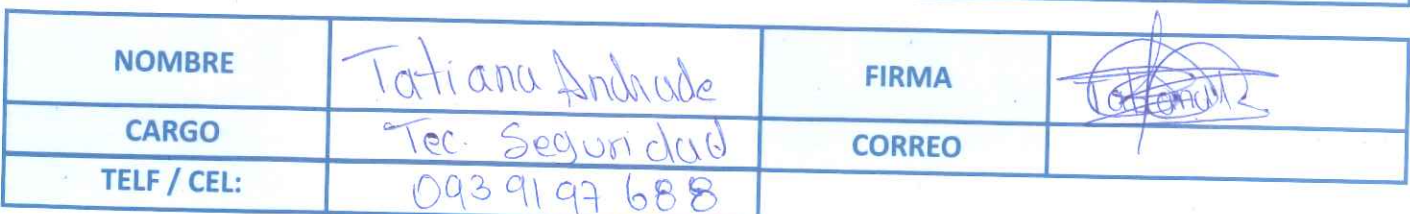 NOMBRE Tatiana Andrade FIRMA
CARGO Tec. Seguridad CORREO
TELF / CEL: 0939197688